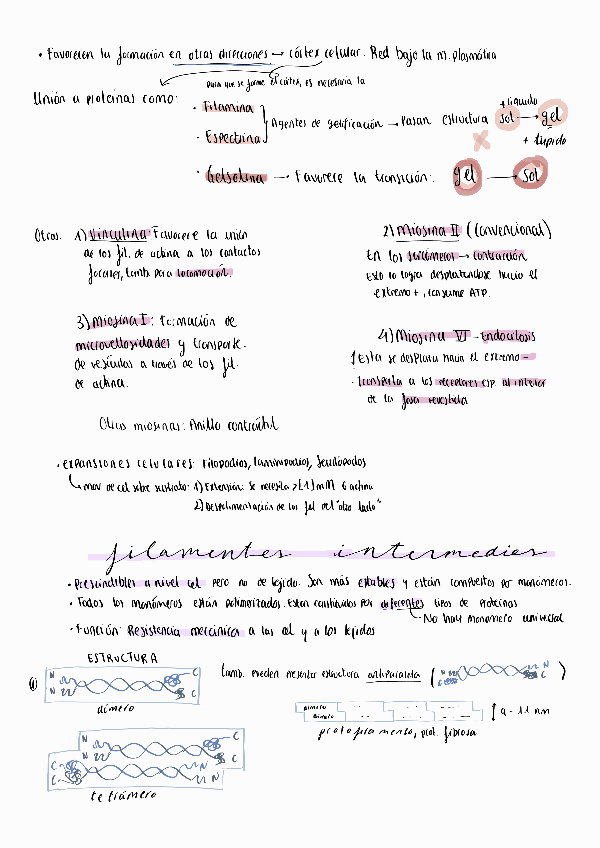 • Favorecen la formación en otras direcciones → córtex celular. Red bajo la m. plasmática
para que se forme el córtex, es necesaria la
Unión a proteínas como:
· Filamina
· Espectrina
Agentes de gelificación → Pasan estructura sol → gel
+ líquido
+ túpido
· Gelsolina → Favorece la transición: gel → sol
Otros: 1) Vinculina: Favorece la unión
de los fil. de actina a los contactos
focales, tamb. para locomoción.
2) Miosina II (convencional)
En los sarcómeros → contracción
Esto lo logra desplazándose hacia el
extremo +, consume ATP.
3) Miosina I: Formación de
microvellosidades y transporte
de vesículas a través de los fil.
de actina.
4) Miosina VI - Endocitosis
Esta se desplaza hacia el extremo -
- Transporta a los receptores esp. al interior
de la fosa revestida
Otras miosinas: Anillo contráctil
· EXPANSIONES CELULARES: Filopodios, lamipodios, seudópodos
mov de cel sobre sustrato: 1) Extensión: se necesita > [ ] mM G actina
2) Despolimerización de los fil del "otro lado"
filamentos intermedios
· Prescindibles a nivel cel pero no de tejido. Son más estables y están compuestos por monómeros.
· Todos los monómeros están polimerizados. Están constituidos por diferentes tipos de proteínas
No hay monómero universal
· Función: Resistencia mecánica a las cel y a los tejidos
ESTRUCTURA
Tamb. pueden presentar estructura antiparalela ( N C N C )
① N N C C
dímero
dímero
dímero
9-11 nm
protofilamento, prot. fibrosa
N N C C
C C N N
tetrámero